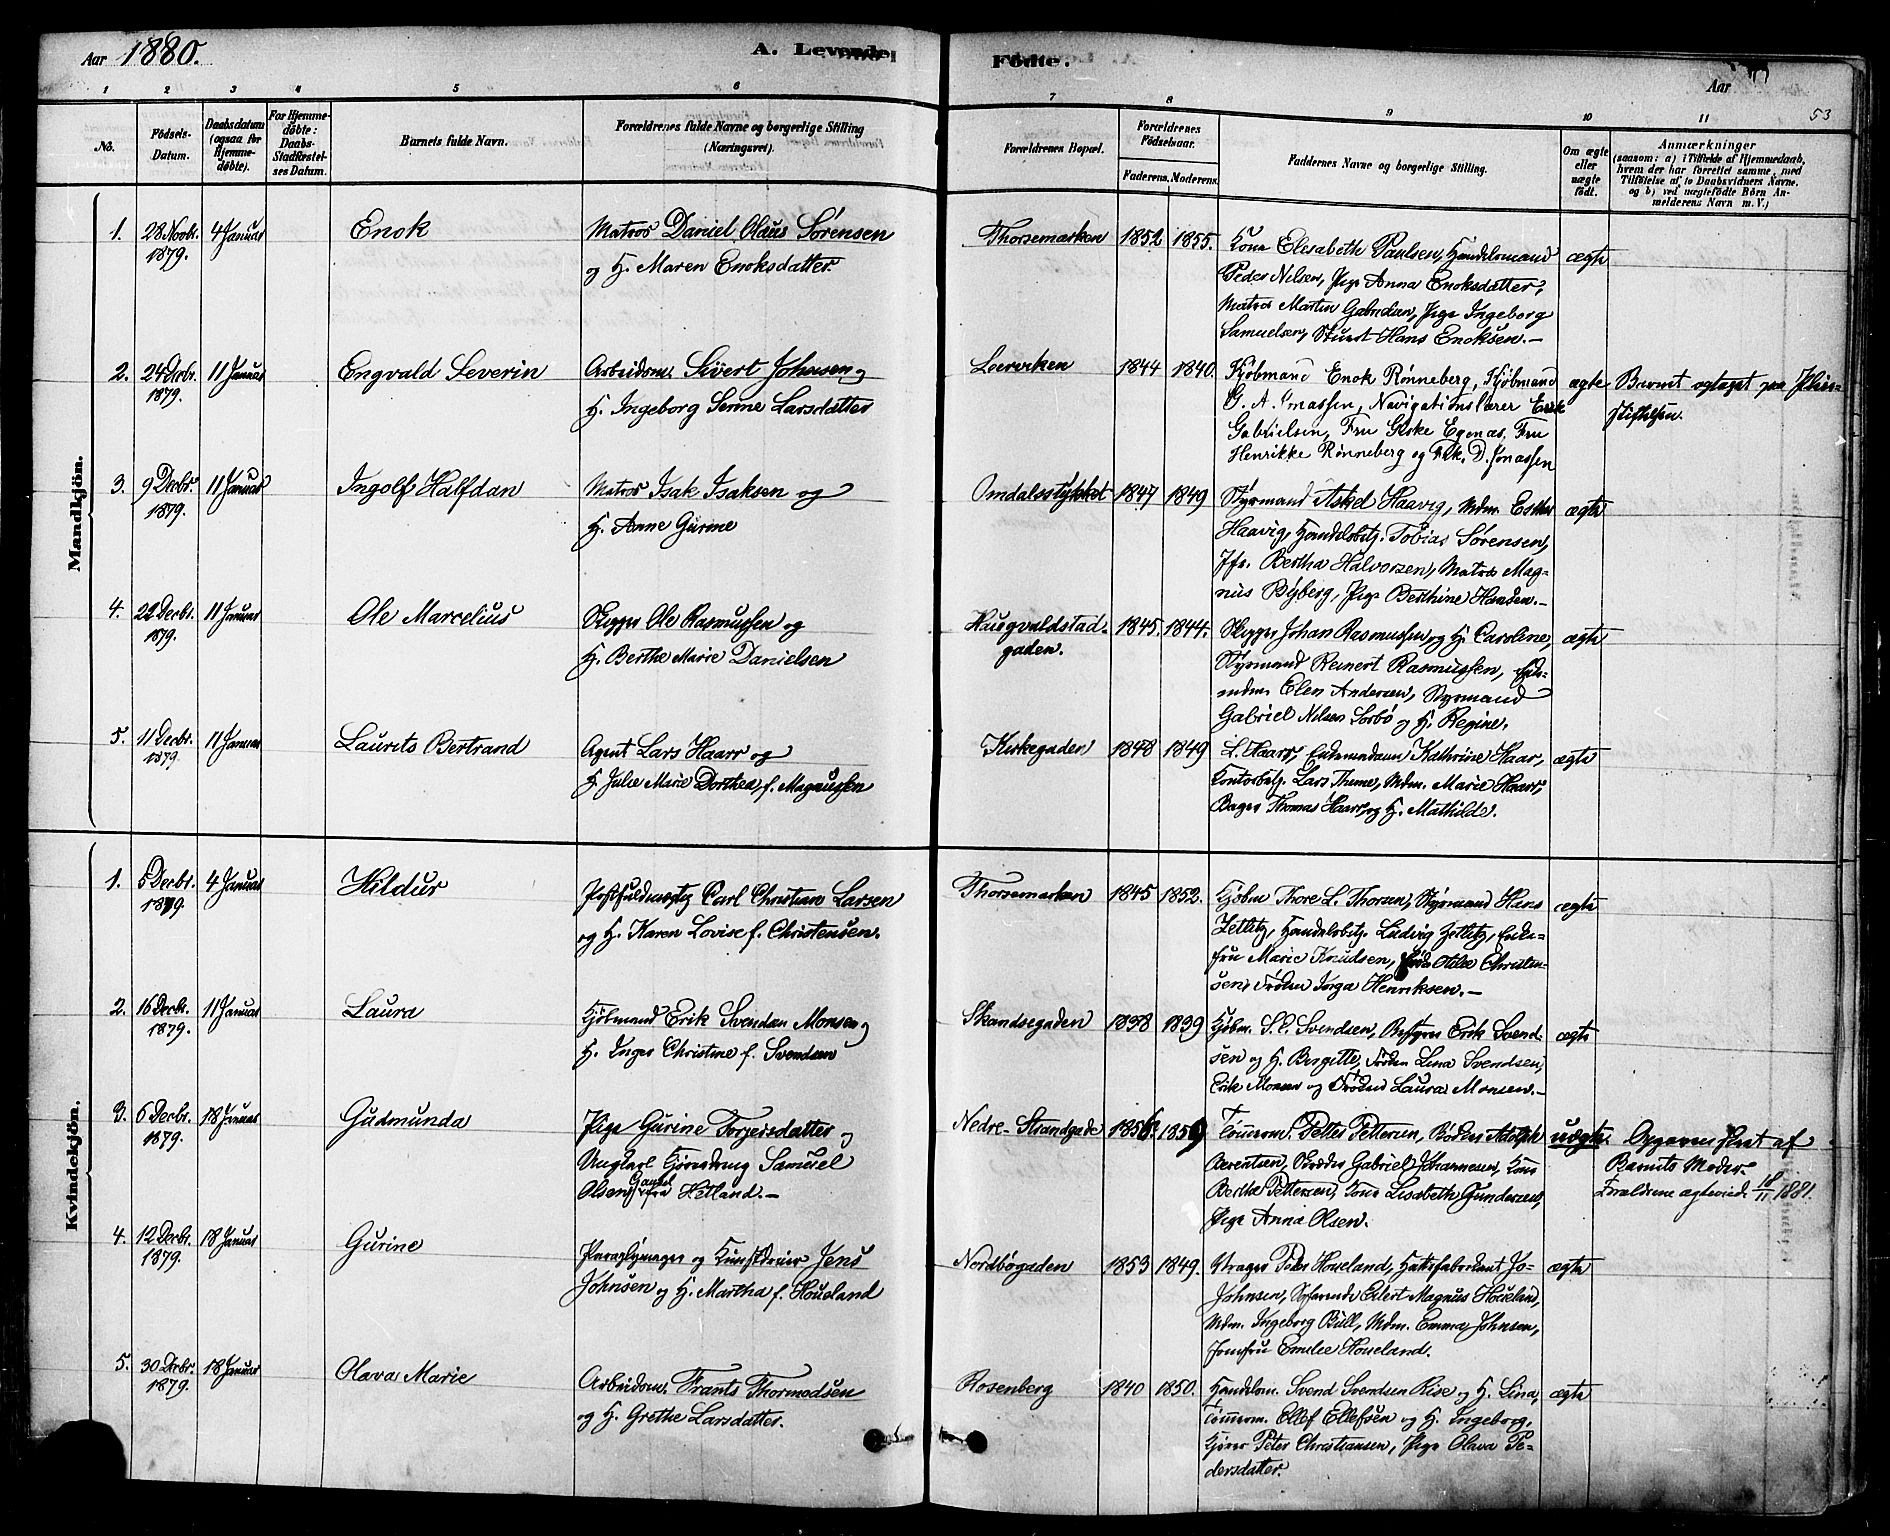 Aar 1880. A. Levende Fødte. Aar
53
1 2 3 4 5 6 7 8 9 10 11
No.
Fødsels-Datum.
Daabsdatum (ogsaa for Hjemmedøbte).
For Hjemmedøbte: Daabs-Stadfæstelses Datum.
Barnets fulde Navn.
Forældrenes fulde Navne og borgerlige Stilling (Næringsvei).
Forældrenes Bopæl.
Forældrenes Fødselsaar.
Faderens. Moderens.
Faddernes Navne og borgerlige Stilling.
Om ægte eller uægte født.
Anmærkninger
(saasom: a) i Tilfælde af Hjemmedaab,
hvem der har forrettet samme, med
Tilføielse af to Daabsvidners Navne,
og b) ved uægtefødte Børn Anmelderens Navn m. V.)
Mandkjön.
1. 28 Novbr. 1879. 4 Januar Enok
Matros Daniel Olaus Sørensen
og H. Maren Enoksdatter.
Thorsemarken 1852 1855.
Kone Elisabeth Paulsen, Handelsmand
Peder Nilsen, Pige Anna Enoksdatter,
Matros Martin Gabrielsen, Pige Ingeborg
Samuelsen, Stuert Hans Enoksen.—
ægte
2. 24 Decbr. 1879. 11 Januar Engvald Severin
Arbeidsm. Sivert Johnsen og
H. Ingeborg Serine Larsdatter
1844 1840.
Kjøbmand Enok Rønneberg, Kjøbmand
Navigationslærer
Gabrielsen, Fru Egenæs, Fru
Henrikke Rønneberg og Frk. D. Jonassen
ægte
Barnet optaget paa
stiftelsen.
3. 9 Decbr. 1879. 11 Januar Ingolf Halfdan
Matros Isak Isaksen og
H. Anne Gurine
Omdalsstykket 1847 1849
Styrmand Askel Haavig, Mdm. Esther
Haavig, Handelsbetj. Tobias Sørensen,
Jfr. Bertha Halvorsen, Matros Mag-
nus Byberg, Pige Berthine Hansen.—
ægte
4. 22 Decbr. 1879. 11 Januar Ole Marcelius
Skipper Ole Rasmussen og
H. Berthe Marie Danielsen
Haugvaldstad-
gaden. 1845. 1844.
Skipper Johan Rasmussen og H. Caroline,
Styrmand Reinert Rasmussen, Enke-
mdm. Elen Andersen, Styrmand
Gabriel Nilsen Sørbø og H. Regine.
ægte
5. 11 Decbr. 1879. 11 Januar Laurits Bertrand
Agent Lars Haarr og
H. Julie Marie Dorthea, f. Magnussen
Kirkegaden 1848 1849
L. Haarr, Enkemadam Kathrine Haar,
Contorbetj. Lars Theme, Mdm. Marie Haarr,
Bager Thomas Haarr, og H. Mathilde.
ægte
Kvindekjön.
1. 5 Decbr. 1879. 4 Januar Hildur
Postfuldmægtig Carl Christian Larsen
og H. Karen Lovise f. Christensen.
Thorsemarken 1845 1852.
Kjøbm Thore L. Thorsen, Styrmand Hans
Zetlitz, Handelsbetj. Ludvig Zetlitz, Enke-
fru Marie Knudsen, Christen-
sen, Frøken Inga Henriksen.—
ægte
2. 16 Decbr. 1879. 11 Januar Laura
Kjøbmand Erik Svendsen Monsen og
H. Inger Christine f. Svendsen
Skandsegaden 1838 1839
Kjøbm. S. C. Svendsen, Bestyrer Erik Svend-
sen og H. Birgitte, Frøken Lina Svendsen,
Erik Monsen og Frøken Laura Monsen.—
ægte
3. 6 Decbr. 1879. 18 Januar Gudmunda
Pige Gurine Torgersdatter og
Ungkarl Samuel
Olsen Gausel fra Hetland.—
Nedre-Strandgade 1856 1859
Tømrerm. Petter Pettersen, Bødker Adolph
Berentsen, Gabriel Johannesen, Kone
Berthe Pettersen, Kone Lisabeth Gundersen,
Pige Anna Olsen.
uægte.
Opgaven skeet af
Barnets Moder.
Forældrene ægteviede 18/11 1881.
4. 12 Decbr. 1879. 18 Januar Gurine
Paraplymager og Kunstdreier Jens
Johnsen og H. Martha f. Houeland
Nordbøgaden 1853 1849.
Peder Houeland, Hattefabrikant Jo-
Johnsen, Søfarende Eilert Magnus Houeland,
Mdm. Ingeborg Bull, Mdm. Emma Johnsen,
Jomfru Emilie Houeland.
ægte
5. 30 Decbr. 1879. 18 Januar Olava Marie
Arbeidsm. Frants Thormodsen
og H. Grethe Larsdatter.
Rosenberg 1840 1850.
Handelsm. Svend Svendsen Rise og H. Lina,
Tømrerm. Ellef Ellefsen og H. Ingeborg,
Kjører Peter Christiansen, Pige Olava Pe-
dersdatter.
ægte